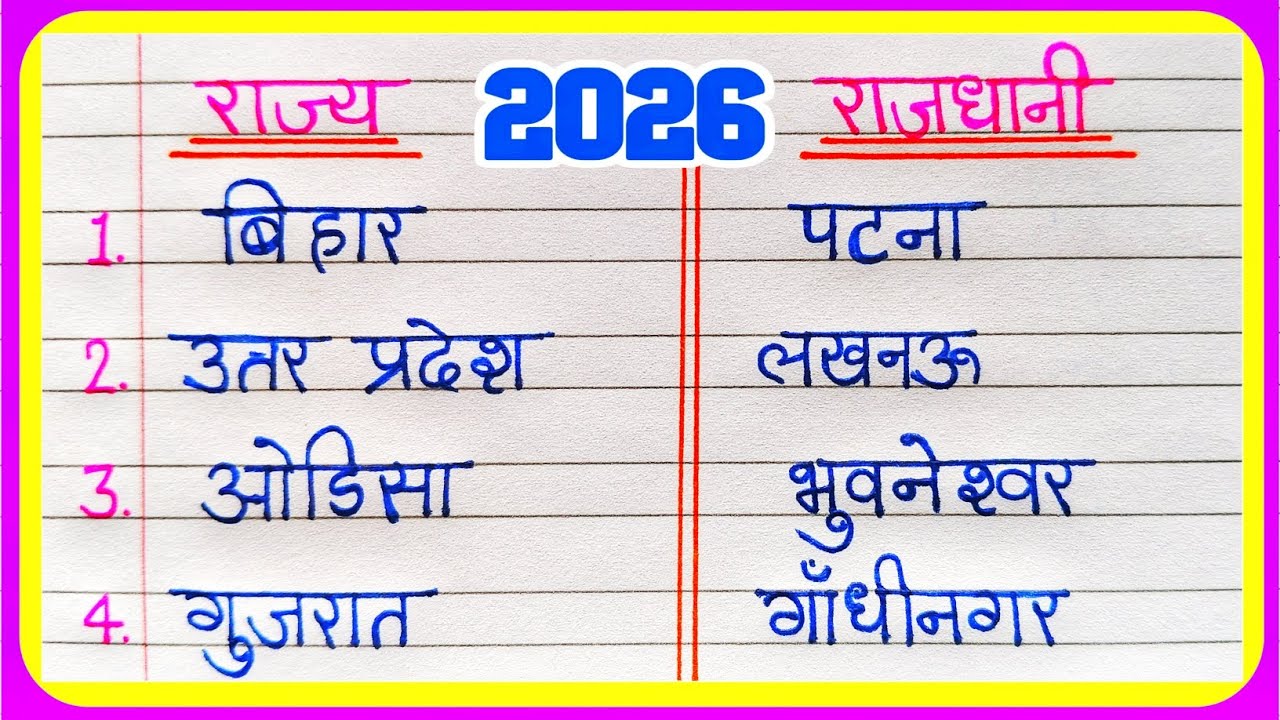 राज्य 2026 राजधानी
1. बिहार पटना
2. उतर प्रदेश लखनऊ
3. ओडिसा भुवनेश्वर
4. गुजरात गाँधीनगर